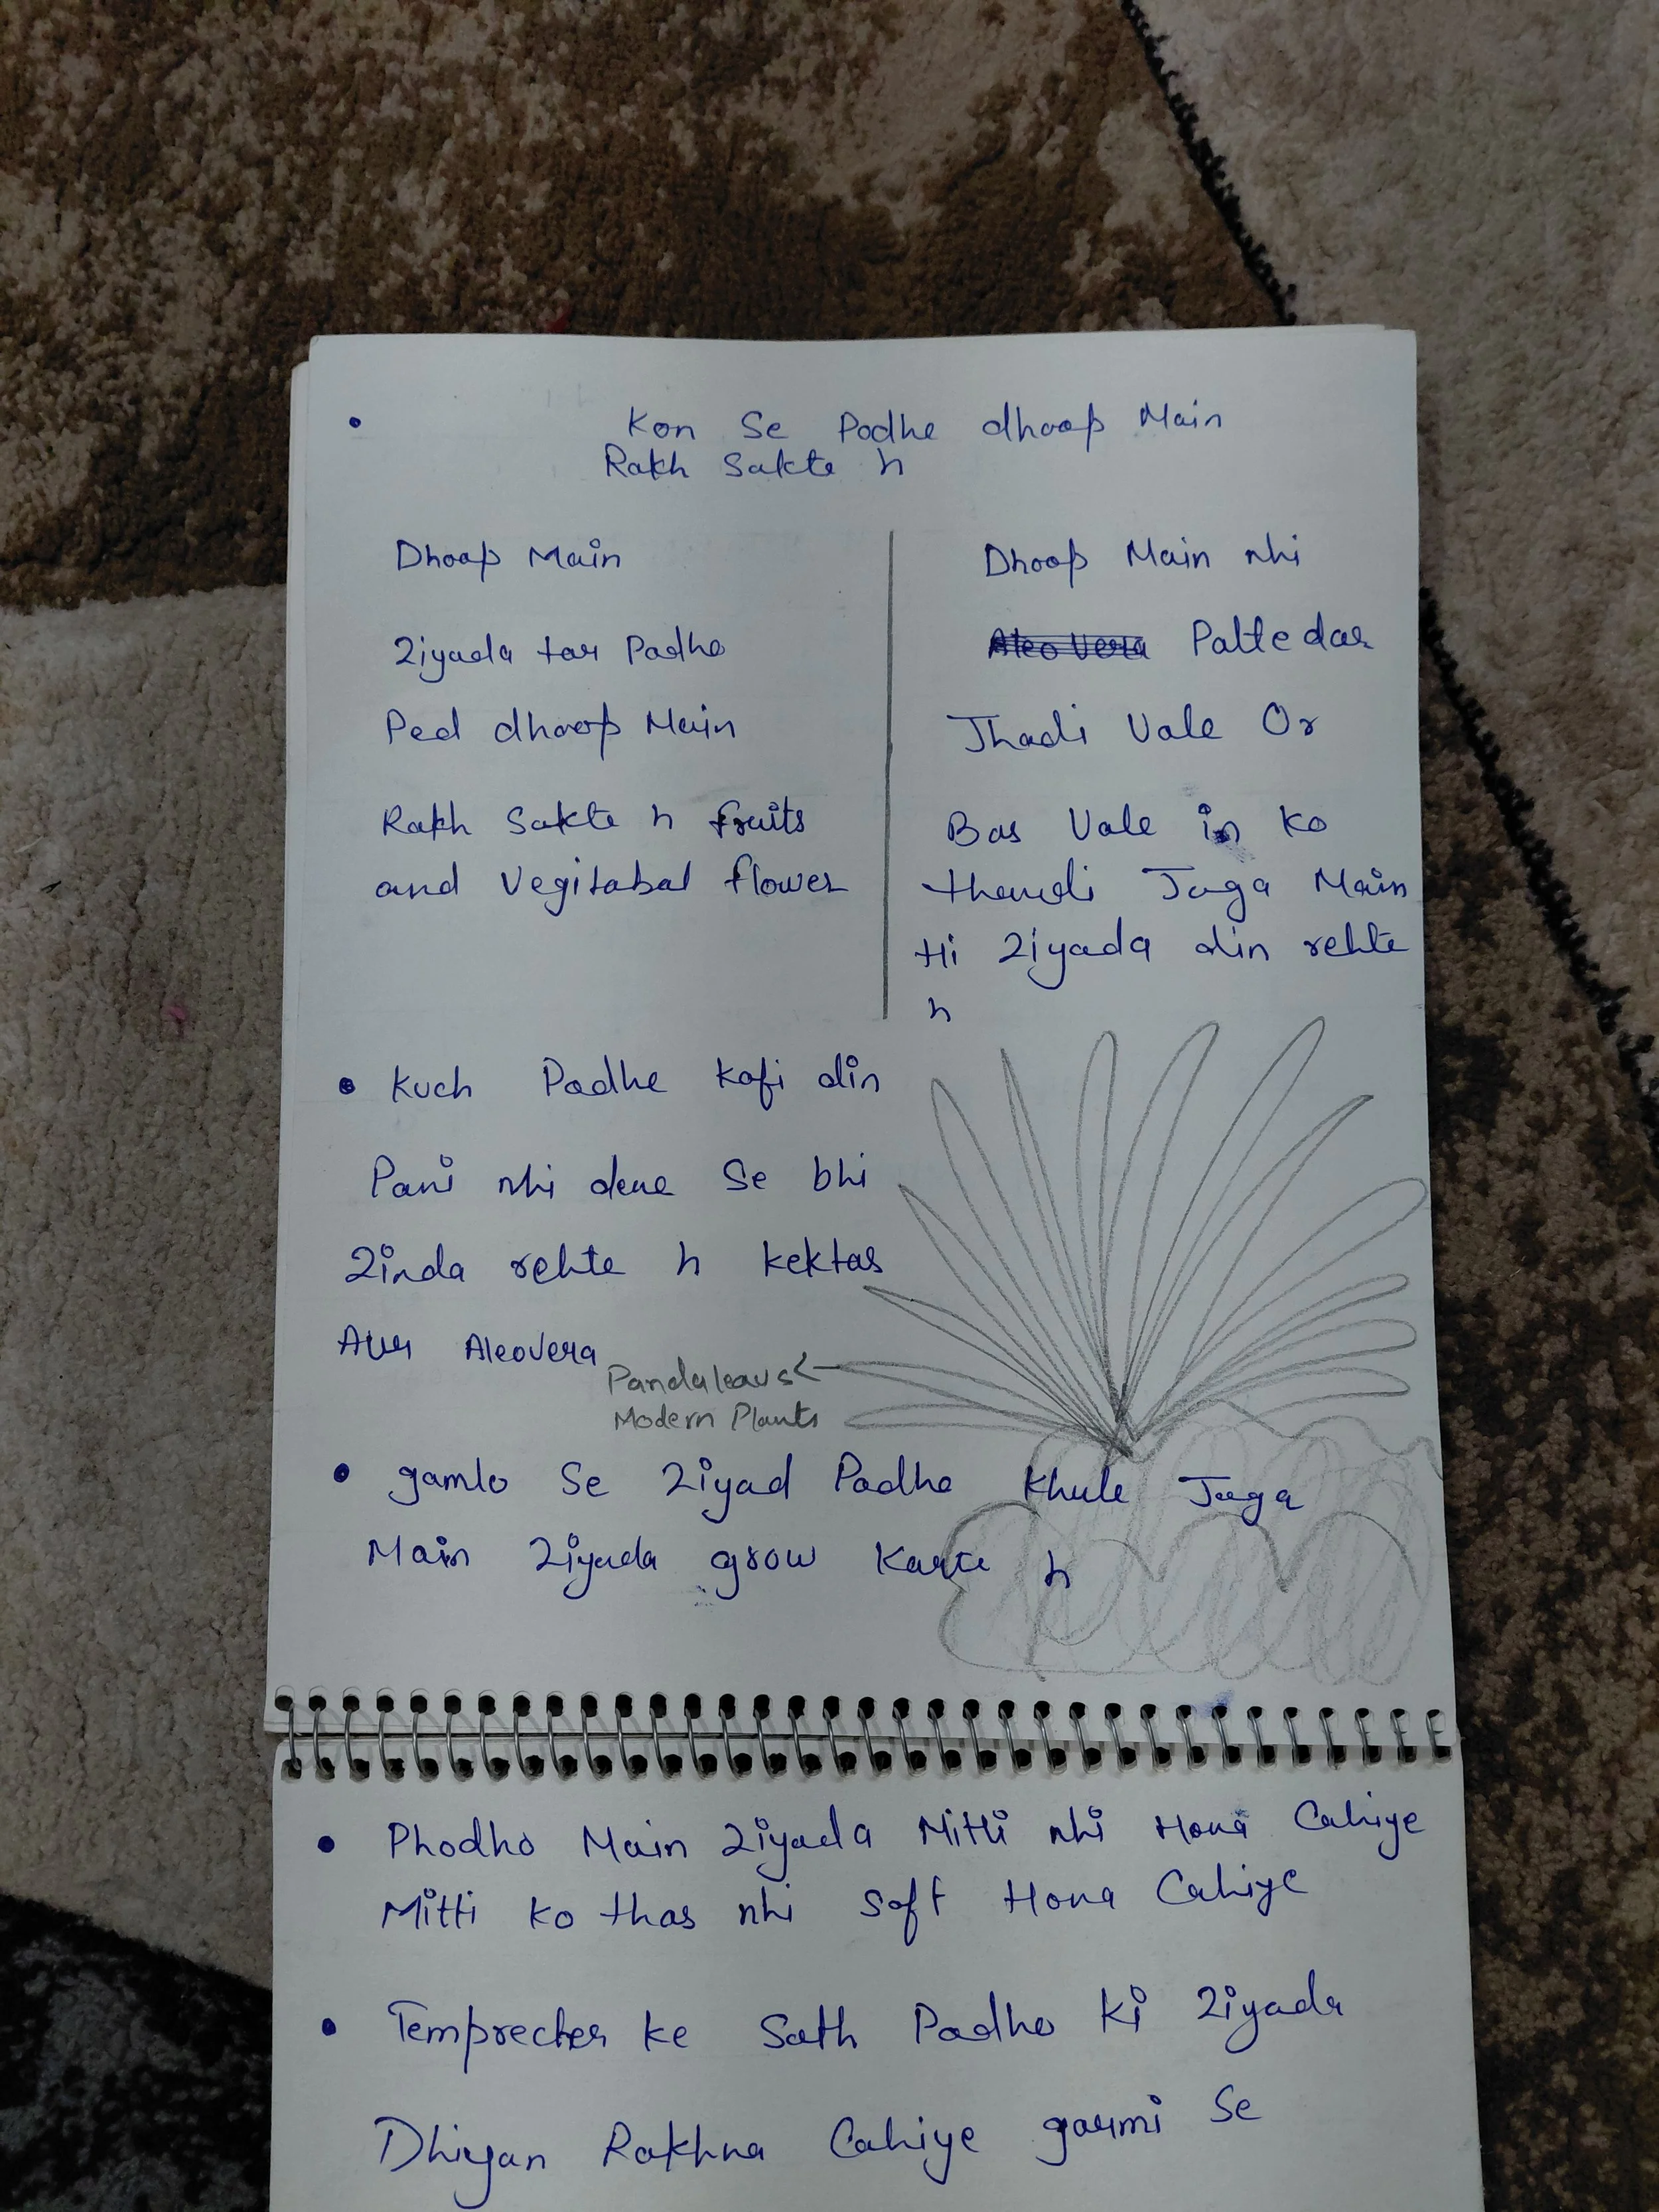 • Kon Se Podhe dhoop Main
Rakh Sakte h
Dhoop Main
Ziyada tar Padho
Ped dhoop Main
Rakh Sakte h fruits
and Vegitabal flower
Dhoop Main nhi
Aleo Vera Pattedar
Jhadi Vale Or
Bas Vale in ko
thandi Jaga Main
Hi Ziyada din rehte
h
• Kuch Padhe kafi din
Pani nhi dene Se bhi
Zinda rehte h kektas
Aur Aleovera
Pandaleavs
Modern Plants
• gamlo Se Ziyad Padhe Khule Jaga
Main Ziyada grow Karte h
• Phodho Main Ziyada Mitti nhi Hona Cahiye
Mitti ko thas nhi Soft Hona Cahiye
• Temprecher ke Sath Padho Ki Ziyada
Dhiyan Rakhna Cahiye garmi Se